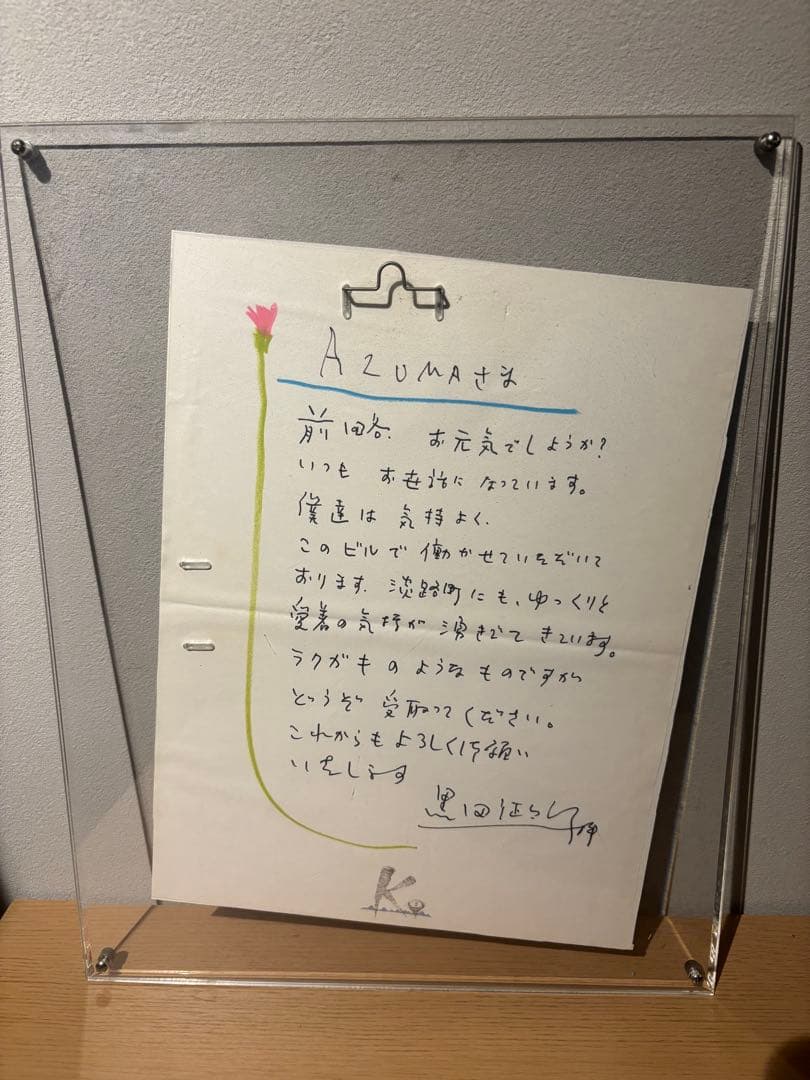 AZUMAさま
前略. お元気でしょうか?
いつも お世話になっています。
僕達は 気持よく.
このビルで 働かせていただいて
おります. 淡路町にも、ゆっくりと
愛着の気持が 湧きでて きています。
ラクガキのようなものですから
どうぞ 受取ってください。
これからもよろしくお願い
いたします
黒田征太郎
K